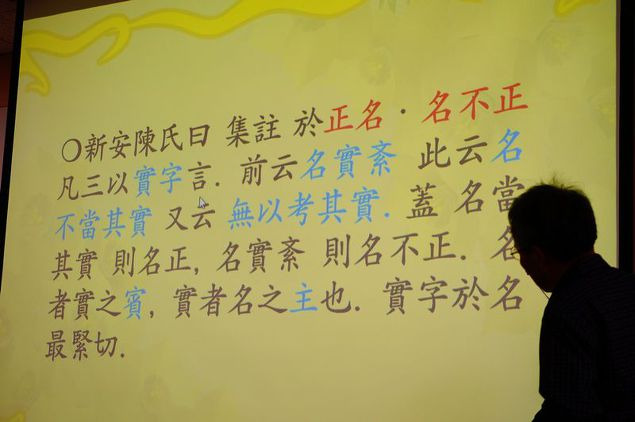 ○新安陳氏曰 集註 於正名·名不正
凡三以實字言. 前云名實紊 此云名
不當其實 又云 無以考其實. 蓋 名當
其實 則名正, 名實紊 則名不正. 名
者實之賓, 實者名之主也. 實字於名
最緊切.